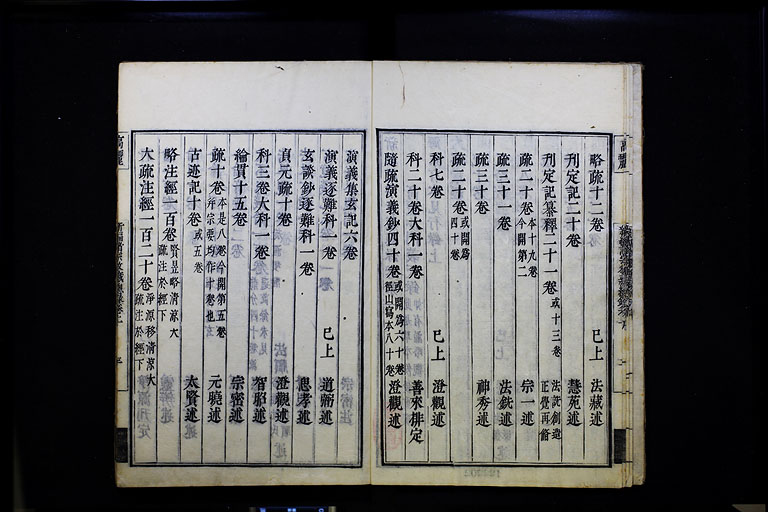 略疏十二卷 已上 法藏述
刋定記二十卷 慧苑述
刋定記纂釋二十一卷 或十三卷 法詵創造 正覺再修
疏二十卷 本十九卷 今開第二 宗一述
疏三十一卷 法銑述
疏三十卷 神秀述
疏二十卷 或開爲四十卷
科七卷 已上
科二十卷大科一卷 善來排定
隨疏演義鈔四十卷 或開爲六十卷 徑山寫本八十卷 澄觀述
演義集玄記六卷
演義逐難科一卷 已上 道弼述
玄談鈔逐難科一卷 思孝述
貞元疏十卷 澄觀述
科三卷大科一卷 智昭述
綸貫十五卷 宗密述
疏十卷 本是八卷今開第五卷 元曉述
古迹記十卷 或五卷 太賢述
略注經一百卷 賢昱略清涼大疏注於經下
大疏注經一百二十卷 淨源移清涼大疏注於經下
高麗
高麗